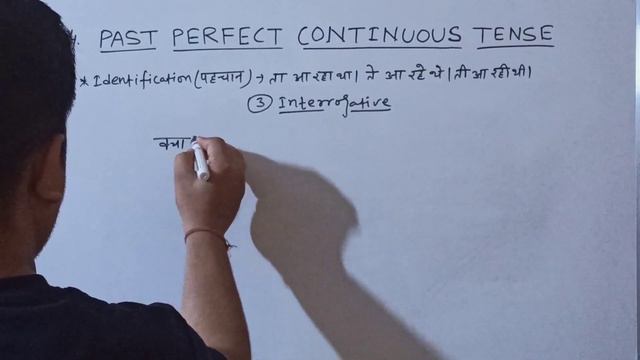 4. PAST PERFECT CONTINUOUS TENSE
* Identification (पहचान) → ता आ रहा था। ते आ रहे थे। ती आ रही थी।
③ Interrogative
क्या